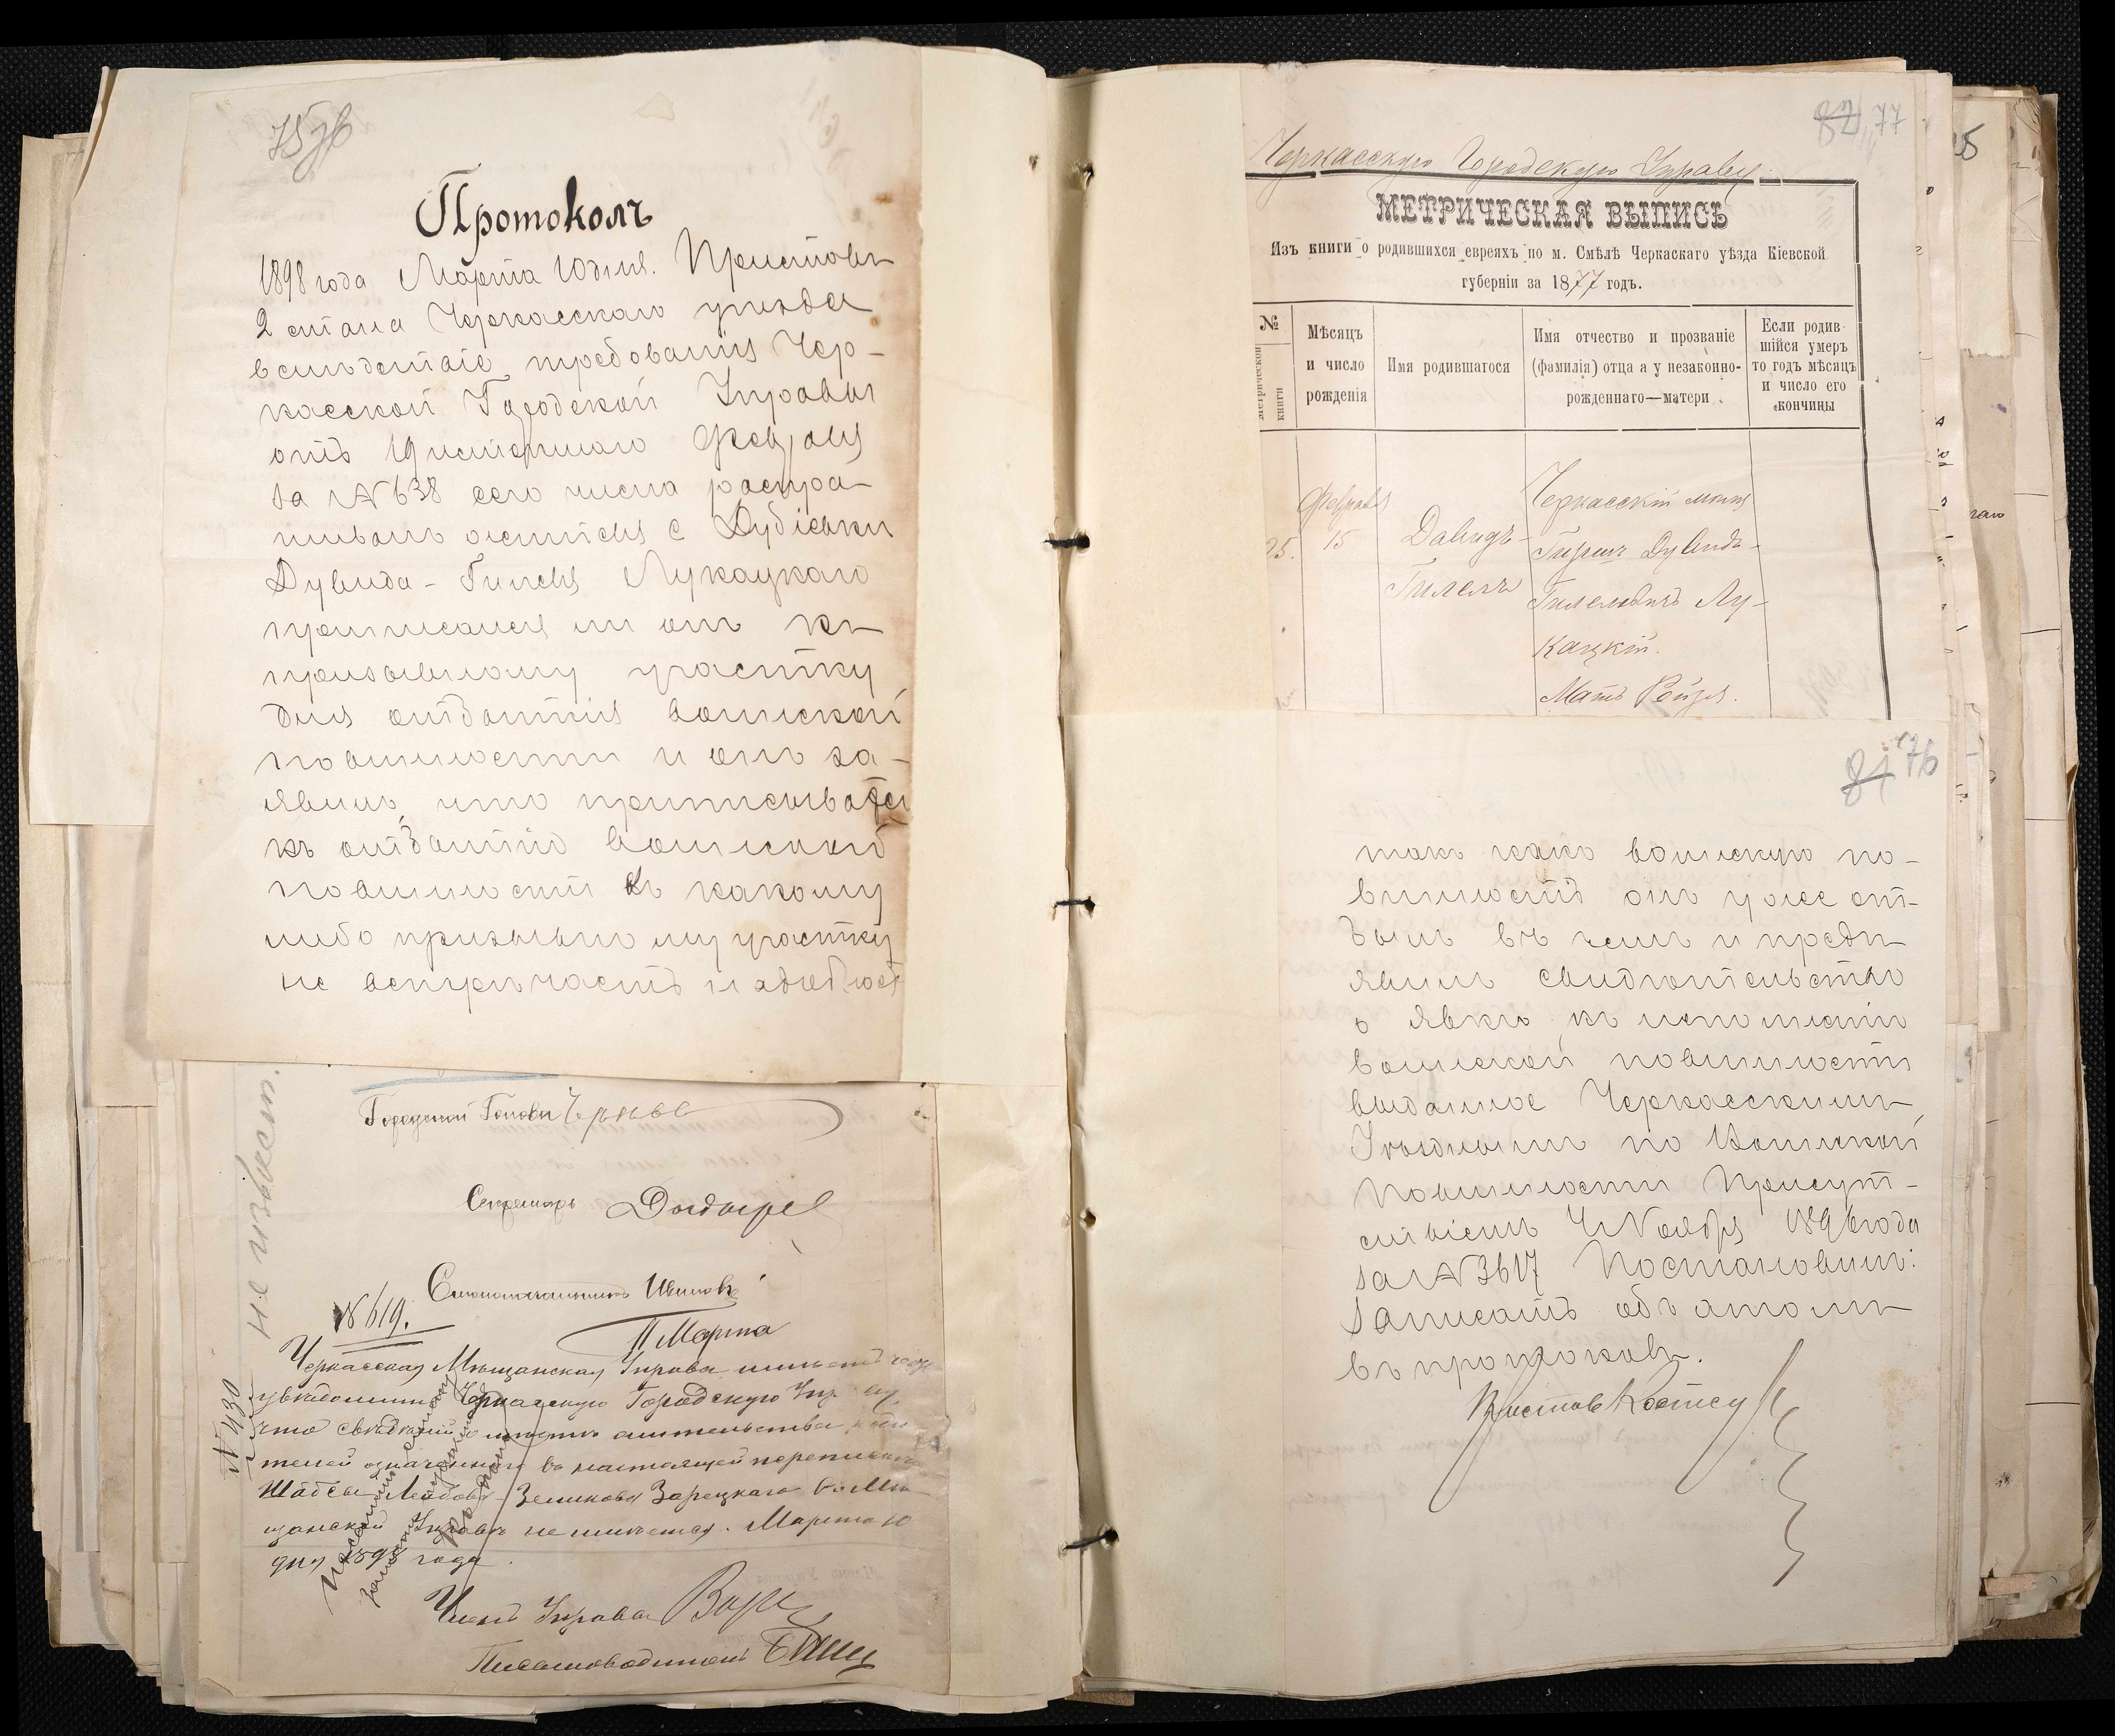 75 об
Протоколъ
1898 года Марта 10 дня. Приставъ
2 стана Черкасскаго уѣзда
вслѣдствіе требованія Чер-
касской Городской Управы
отъ 19 истекшаго Февраля
за № 638 сего числа распра-
шивалъ жителя с Дубіевки
Дувида-Гилеля Лукацкаго
приписался ли онъ къ
призывному участку
для отбытія воинской
повинности и онъ за-
явилъ, что приписываться
къ отбытію воинской
повинности къ какому
либо призывному участку
не встрѣчаетъ надобности
Городской Голова
Секретарь
Столоначальникъ
№ 619.
11 Марта
Черкасская Мѣщанская Управа имѣетъ честь
увѣдомить Черкасскую Городскую Управу,
что свѣдѣній о мѣстѣ жительства роди
телей означеннаго въ настоящей перепискѣ
Зеликова Зарецкаго въ Мѣ
щанской Управѣ не имѣется. Марта 10
дня 1898 года.
Членъ Управы
Письмоводитель
не извѣст.
№ 430
82 77
Черкасскую Городскую Управу
МЕТРИЧЕСКАЯ ВЫПИСЬ
Изъ книги о родившихся евреяхъ по м. Смѣлѣ Черкаскаго уѣзда Кіевской
губерніи за 1877 годъ.
№
метрической
книги
Мѣсяцъ
и число
рожденія
Имя родившагося
Имя отчество и прозваніе
(фамилія) отца а у незаконно-
рожденнаго—матери
Если родив
шійся умеръ
то годъ мѣсяцъ
и число его
кончины
25.
Февраль
15
Давидъ-
Гилель
Черкасскій мѣщ
Гиршъ Дувидъ-
Гилелевичъ Лу-
кацкій.
Мать Рейзя.
81 76
такъ какъ воинскую по-
винность онъ уже от-
былъ въ чемъ и предъ
явилъ свидѣтельство
о явкѣ къ исполненію
воинской повинности
выданное Черкасскимъ
Уѣзднымъ по Воинской
Повинности Присут-
ствіемъ 4 Ноября 1896 года
за № 3617 Постановилъ:
Записать объ этомъ
въ протоколъ.
Приставъ